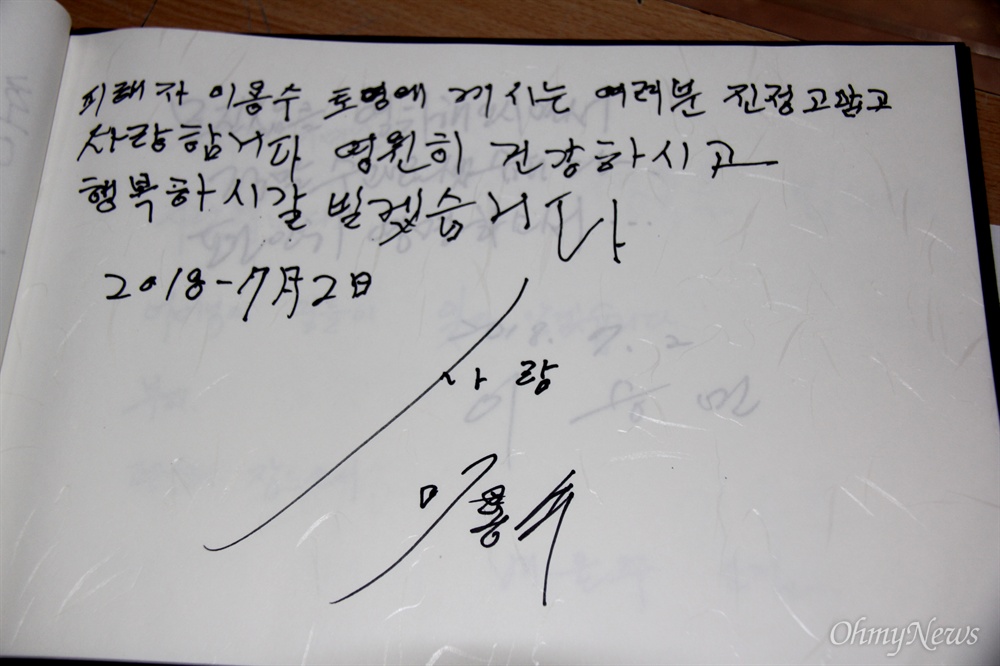 피해자 이용수 토영에 계시는 여러분 진정고맙고
사랑합니다 영원히 건강하시고
행복하시갈 빌겠습니다
2018-7月2日
사랑
이용수
OhmyNews